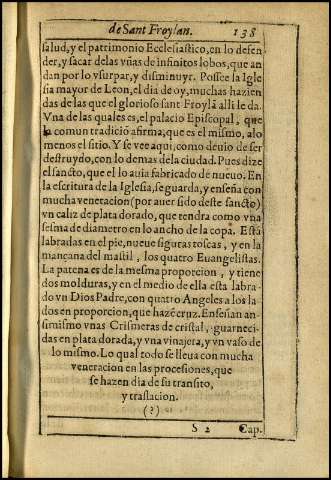 de Sant Froylan. 138
salud, y el patrimonio Ecclesiastico, en lo defen
der, y sacar delas vñas de infinitos lobos, que an
dan por lo vsurpar, y disminuyr. Possee la Igle
sia mayor de Leon, el dia de oy, muchas hazien
das de las que el glorioso sant Froylā alli le da.
Vna de las quales es, el palacio Episcopal, que
la comun tradiciō afirma, que es el mismo, alo
menos el sitio. Y se vee aqui, como deuio de ser
destruydo, con lo demas dela ciudad. Pues dize
el sancto, que el lo auia fabricado de nueuo. En
la escritura de la Iglesia, se guarda, y enseña con
mucha veneracion (por auer sido deste sancto)
vn caliz de plata dorado, que tendra como vna
sesma de diametro en lo ancho de la copa. Està
labradas en el pie, nueue figuras toscas, y en la
mançana del mastil, los quatro Euangelistas.
La patena es de la mesma proporcion, y tiene
dos molduras, y en el medio de ella esta labra-
do vn Dios Padre, con quatro Angeles a los la
dos en proporcion, que hazē cruz. Enseñan an-
simismo vnas Crismeras de cristal, guarneci-
das en plata dorada, y vna vinajera, y vn vaso de
lo mismo. Lo qual todo se lleua con mucha
veneracion en las procesiones, que
se hazen dia de su transito,
y traslacion.
(?)
S 2 Cap.